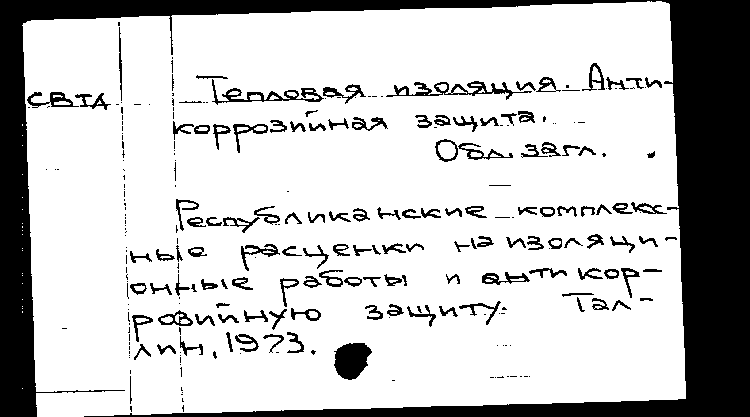 СВТД Тепловая изоляция. Анти-
коррозийная защита.
Обл. загл.
Республиканские комплекс-
ные расценки на изоляци-
онные работы и антикор-
розийную защиту. Тал-
лин, 1973.